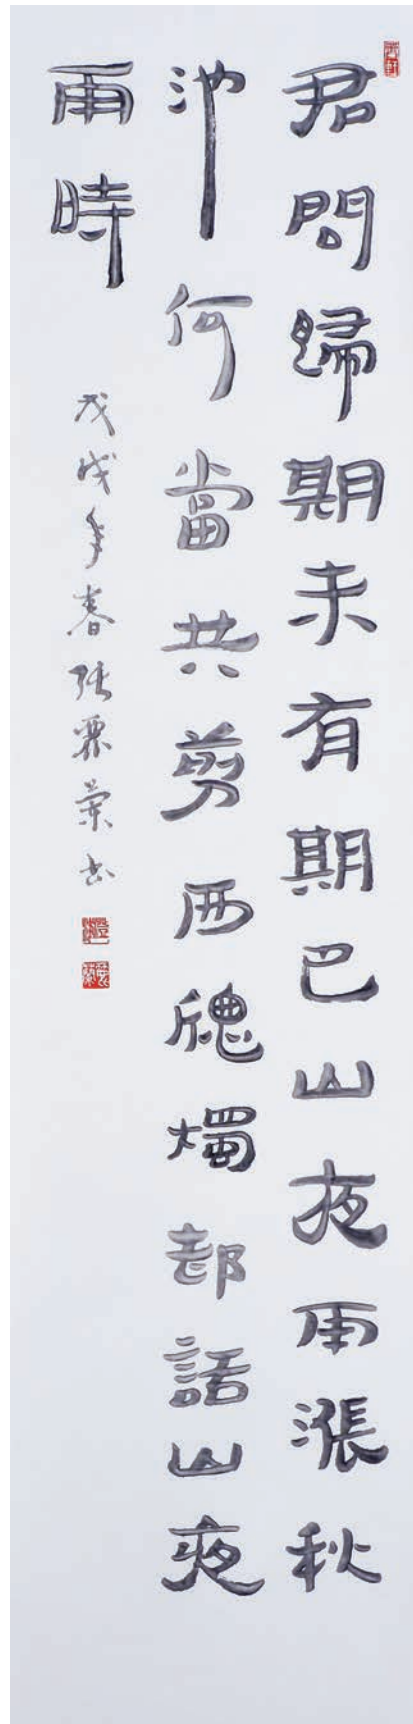 君問歸期未有期巴山夜雨漲秋
池何當共剪西牕燭却話山夜
雨時
戊戌年春張